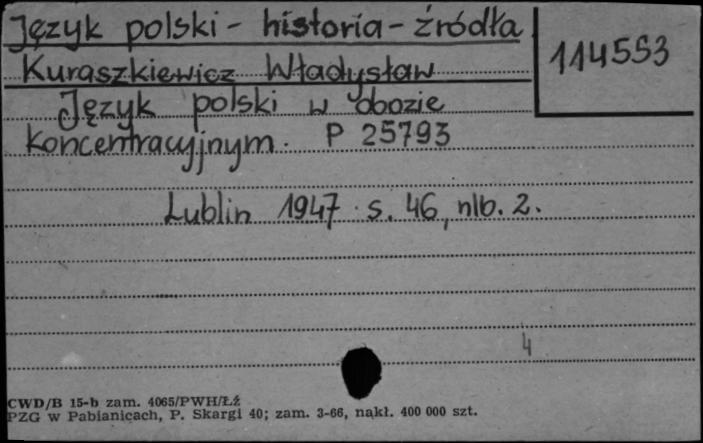 Język polski - historia - źródła
114553
Kuraszkiewicz Władysław
Język polski w obozie
koncentracyjnym. P 25793
Lublin 1947 s. 46, nlb. 2.
4
CWD/B 15-b zam. 4065/PWH/Łź
PZG w Pabianicach, P. Skargi 40; zam. 3-66, nakł. 400 000 szt.